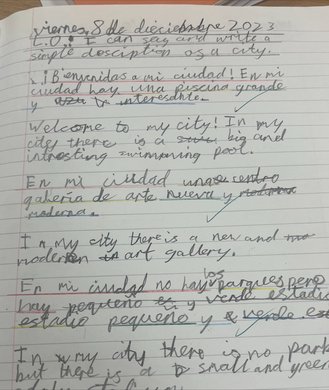 viernes, 8 de diecienbre 2023
L.O: I can say and write a
simple desciption of a city.
¡Bienvenidas a mi ciudad! En mi
ciudad hay una piscina grande
y interesante.
Welcome to my city! In my
city there is a big and
intresting swimming pool.
En mi ciudad una centro
galería de arte nueva y
moderna.
In my city there is a new and mo
modern an art gallery.
En mi ciudad no hay los parques pero
hay pequeño es y verde estadi
estadio pequeño y verde
In my city there is no park
but there is a small and green